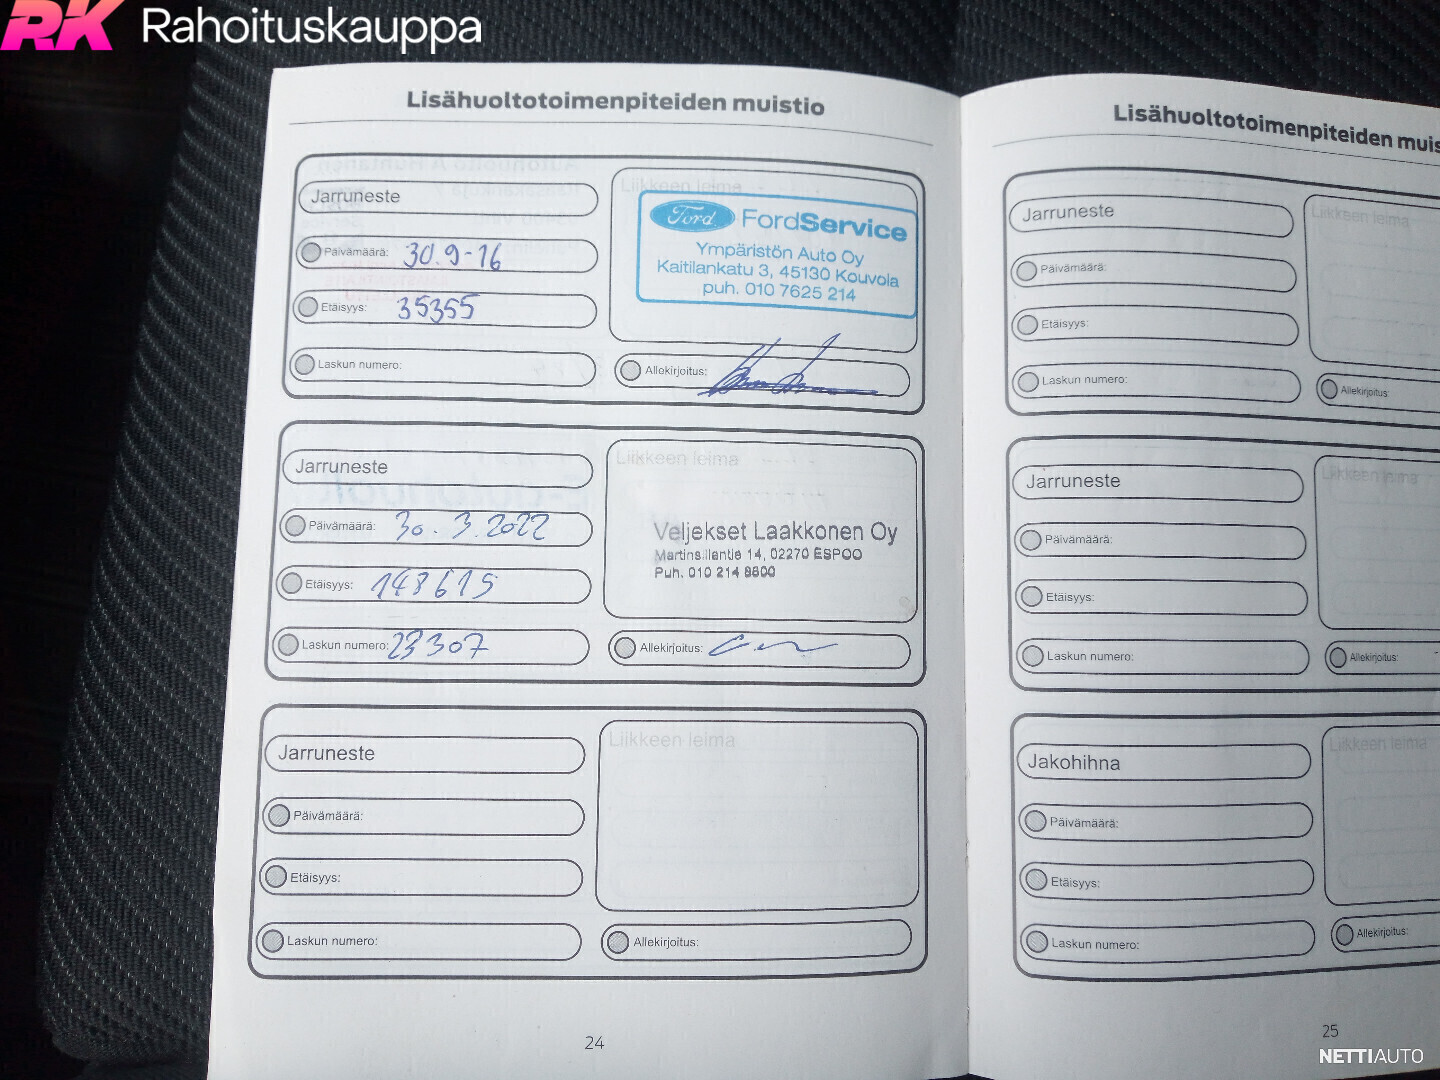 RK Rahoituskauppa
Lisähuoltotoimenpiteiden muistio
Jarruneste
Päivämäärä: 30.9-16
Etäisyys: 35355
Laskun numero:
Liikkeen leima
Ford FordService
Ympäristön Auto Oy
Kaitilankatu 3, 45130 Kouvola
puh. 010 7625 214
Allekirjoitus:
Jarruneste
Päivämäärä: 30.3.2022
Etäisyys: 148615
Laskun numero: 23307
Liikkeen leima
Veljekset Laakkonen Oy
Martinsillantie 14, 02270 ESPOO
Puh. 010 214 8800
Allekirjoitus:
Jarruneste
Päivämäärä:
Etäisyys:
Laskun numero:
Liikkeen leima
Allekirjoitus:
24
Lisähuoltotoimenpiteiden muis
Jarruneste
Päivämäärä:
Etäisyys:
Laskun numero:
Liikkeen leima
Allekirjoitus:
Jarruneste
Päivämäärä:
Etäisyys:
Laskun numero:
Liikkeen leima
Allekirjoitus:
Jakohihna
Päivämäärä:
Etäisyys:
Laskun numero:
Liikkeen leima
Allekirjoitus:
25
NETTIAUTO